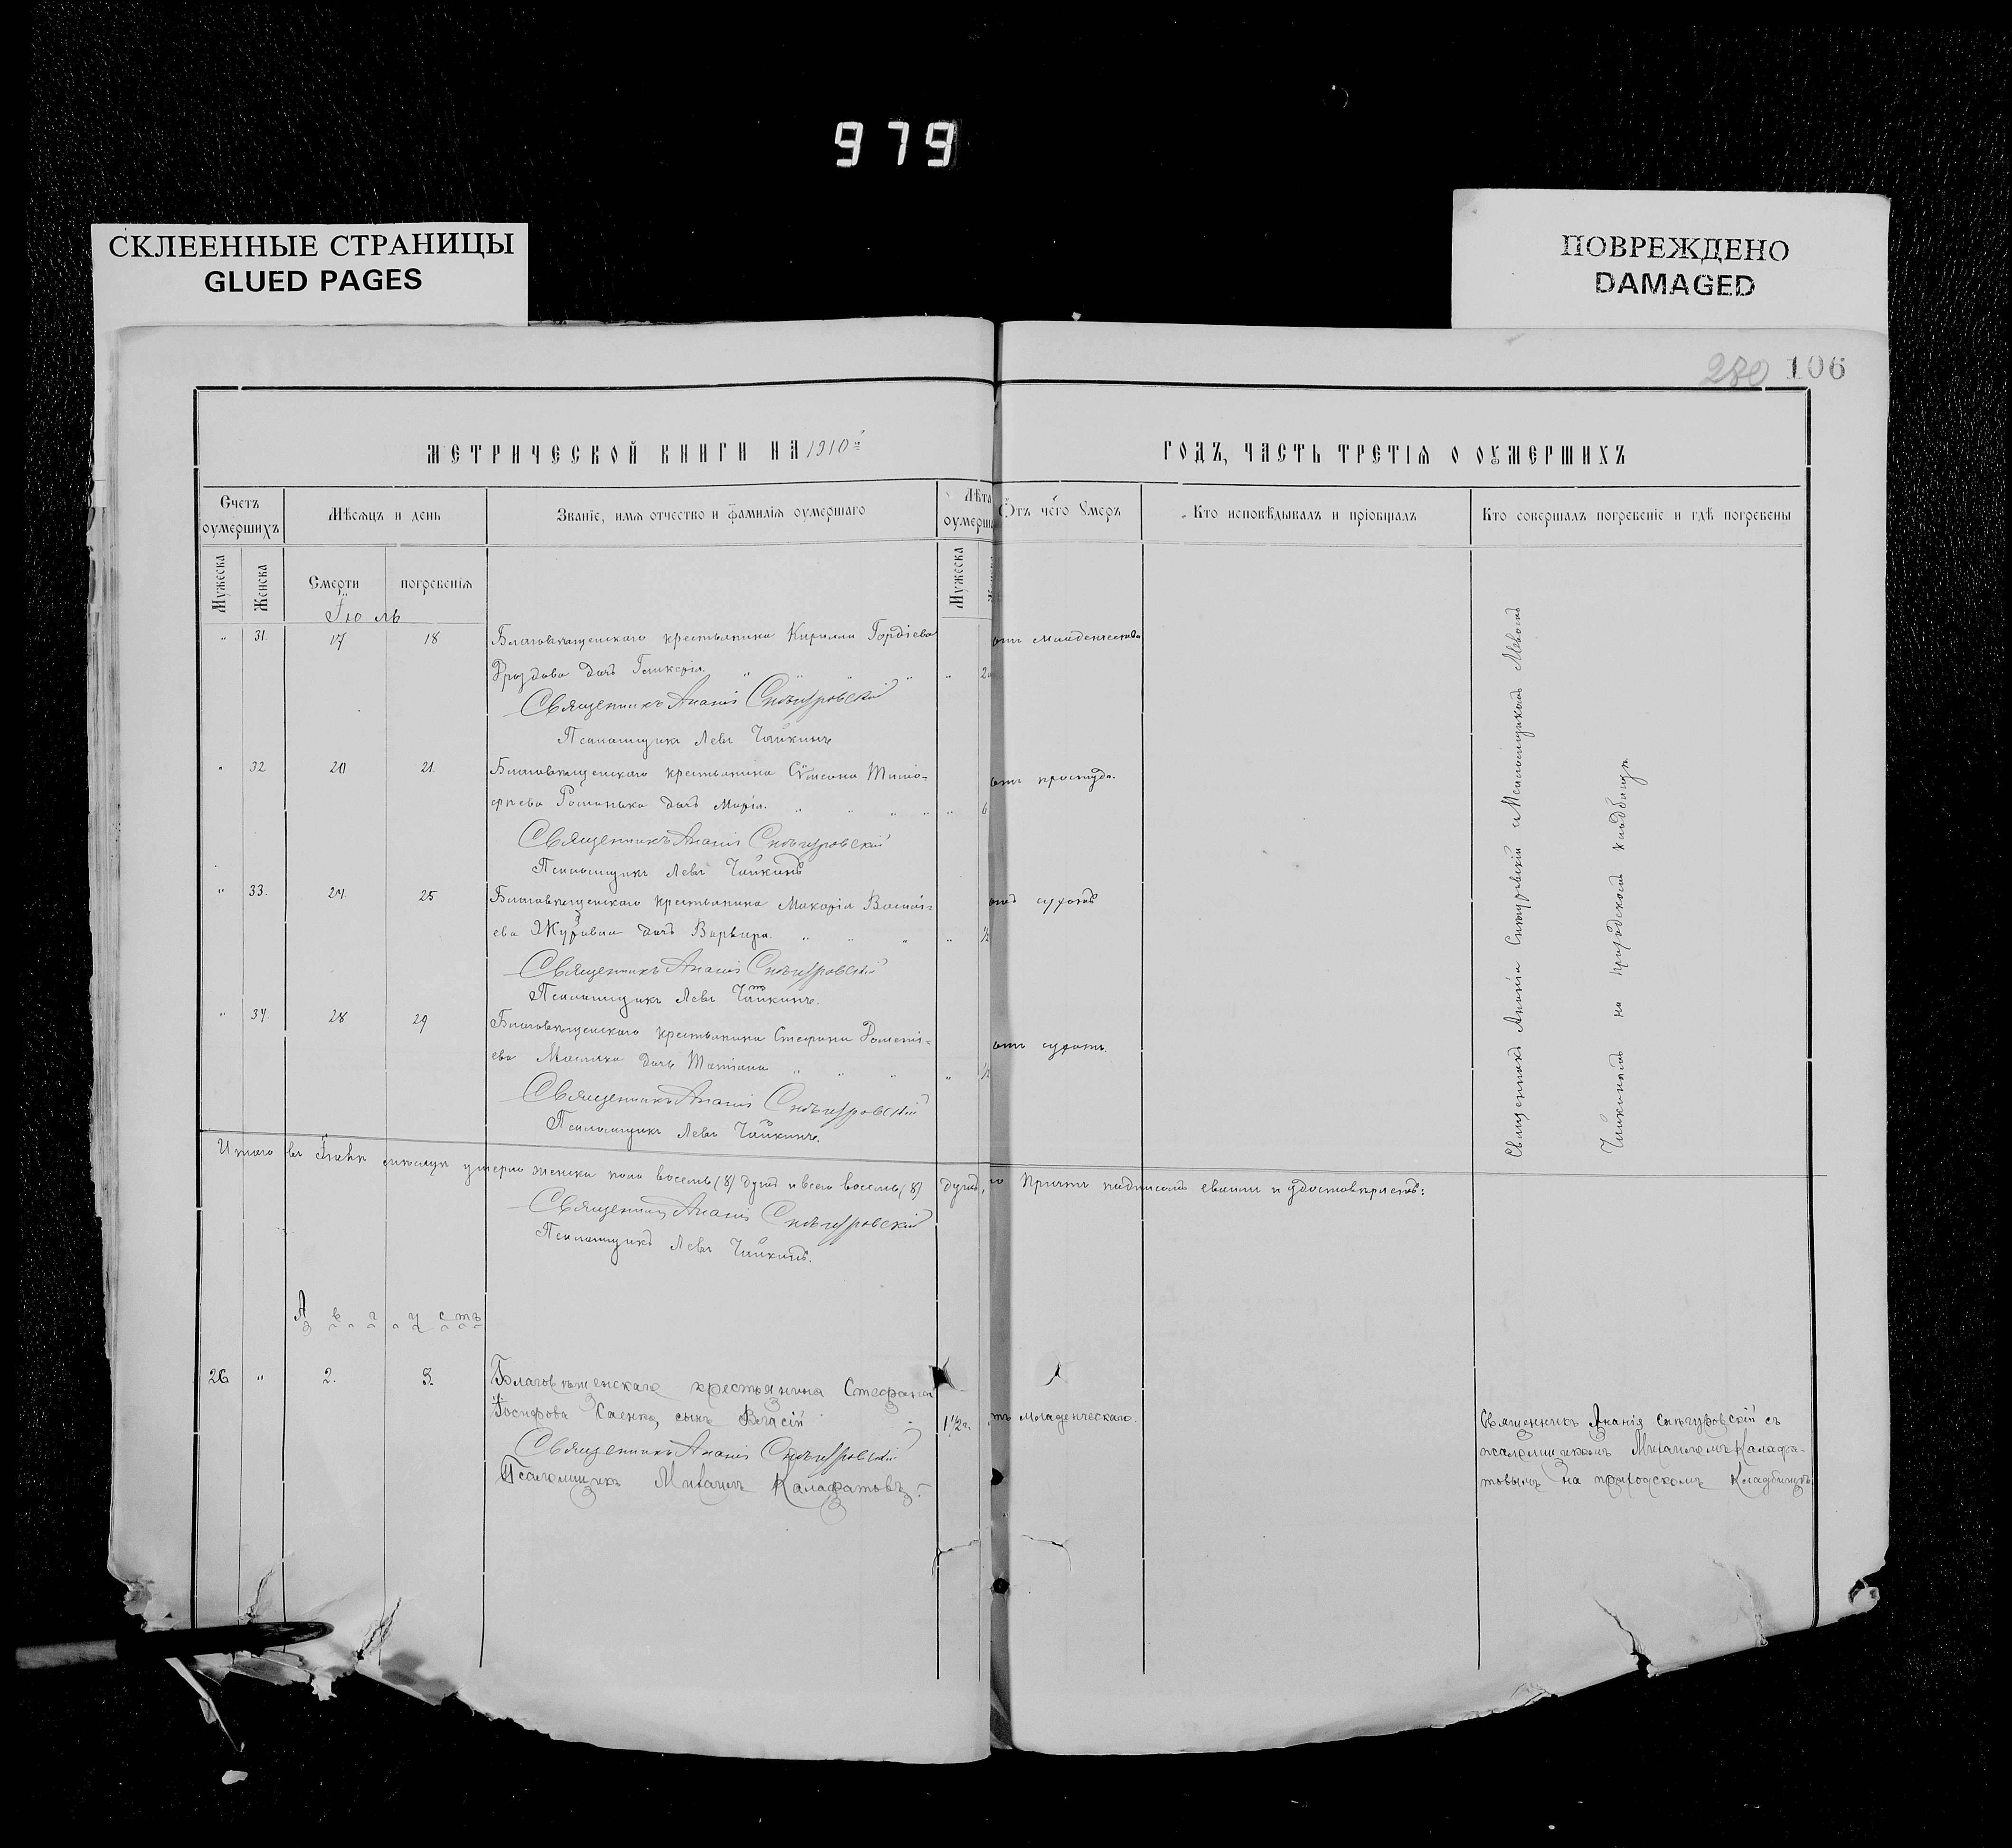 979
СКЛЕЕННЫЕ СТРАНИЦЫ
GLUED PAGES
ПОВРЕЖДЕНО
DAMAGED
280 106
МЕТРИЧЕСКОЙ КНИГИ НА 1910 й
ГОДЪ, ЧАСТЬ ТРЕТІЯ О ОУМЕРШИХЪ
Счетъ оумершихъ
Мѣсяцъ и день
Званіе, имя отчество и фамилія оумершаго
Лѣта оумерша
Отъ чего Умеръ
Кто исповѣдывалъ и пріобщалъ
Кто совершалъ погребеніе и гдѣ погребены
Мужеска
Женска
Смерти
погребенія
Мужеска
Іюль
" 31. 17 18 Благовѣщенскаго крестьянина Кирилла Гордіева отъ младенческаго
Дроздова дочь Гликерія " 2
Священникъ Ананій Снѣгуровскій
Псаломщикъ Левъ Чайкинъ
" 32 20 21 Благовѣщенскаго крестьянина Сѵмеона Тимо- отъ простуды.
фѣева Романько дочь Марія. " 6
Священникъ Ананій Снѣгуровскій
Псаломщикъ Левъ Чайкинъ
" 33. 24 25 Благовѣщенскаго крестьянина Макарія Василі- отъ сухотъ
ева Журавля дочь Варвара. " ½
Священникъ Ананій Снѣгуровскій
Псаломщикъ Левъ Чайкинъ.
" 34 28 29 Благовѣщенскаго крестьянина Стефана Дометі- отъ сухотъ.
ева дочь Татіана " ½
Священникъ Ананій Снѣгуровскій
Псаломщикъ Левъ Чайкинъ.
Священникъ Ананій Снѣгуровскій съ Псаломщикомъ Львомъ
Чайкинымъ на приходскомъ кладбищѣ
Итого въ Іюлѣ мѣсяцѣ умерло женска пола восемь (8) душъ и всего восемь (8) душъ, Причтъ подписомъ своимъ и удостовѣряетъ:
Священникъ Ананій Снѣгуровскій
Псаломщикъ Левъ Чайкинъ.
Августъ
26 " 2. 3. Благовѣщенскаго крестьянина Стефана
Іосифова Саенко, сынъ Власій 1 1/2 г. отъ младенческаго.
Священникъ Ананій Снѣгуровскій
Псаломщикъ Михаилъ Калафатовъ.
Священникъ Ананія Снѣгуровскій съ
псаломщикомъ Михаиломъ Калафа-
товымъ на приходскомъ кладбищѣ.